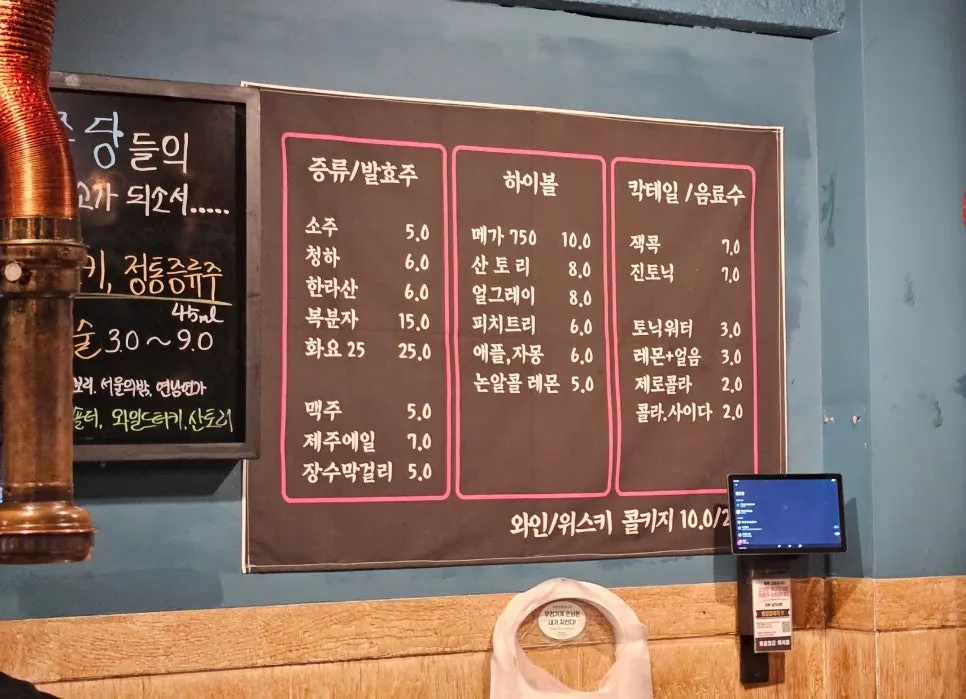 당들의
되소서.....
키, 정통증류주
45ml
술 3.0 ~ 9.0
보리. 서울의밤, 연남연가
와일드터키, 산토리
증류/발효주
소주 5.0
청하 6.0
한라산 6.0
복분자 15.0
화요 25 25.0
맥주 5.0
제주에일 7.0
장수막걸리 5.0
하이볼
메가 750 10.0
산토리 8.0
얼그레이 8.0
피치트리 6.0
애플,자몽 6.0
논알콜 레몬 5.0
칵테일 /음료수
잭콕 7.0
진토닉 7.0
토닉워터 3.0
레몬+얼음 3.0
제로콜라 2.0
콜라.사이다 2.0
와인/위스키 콜키지 10.0/2
우리가게 손님은
내가 지킨다!